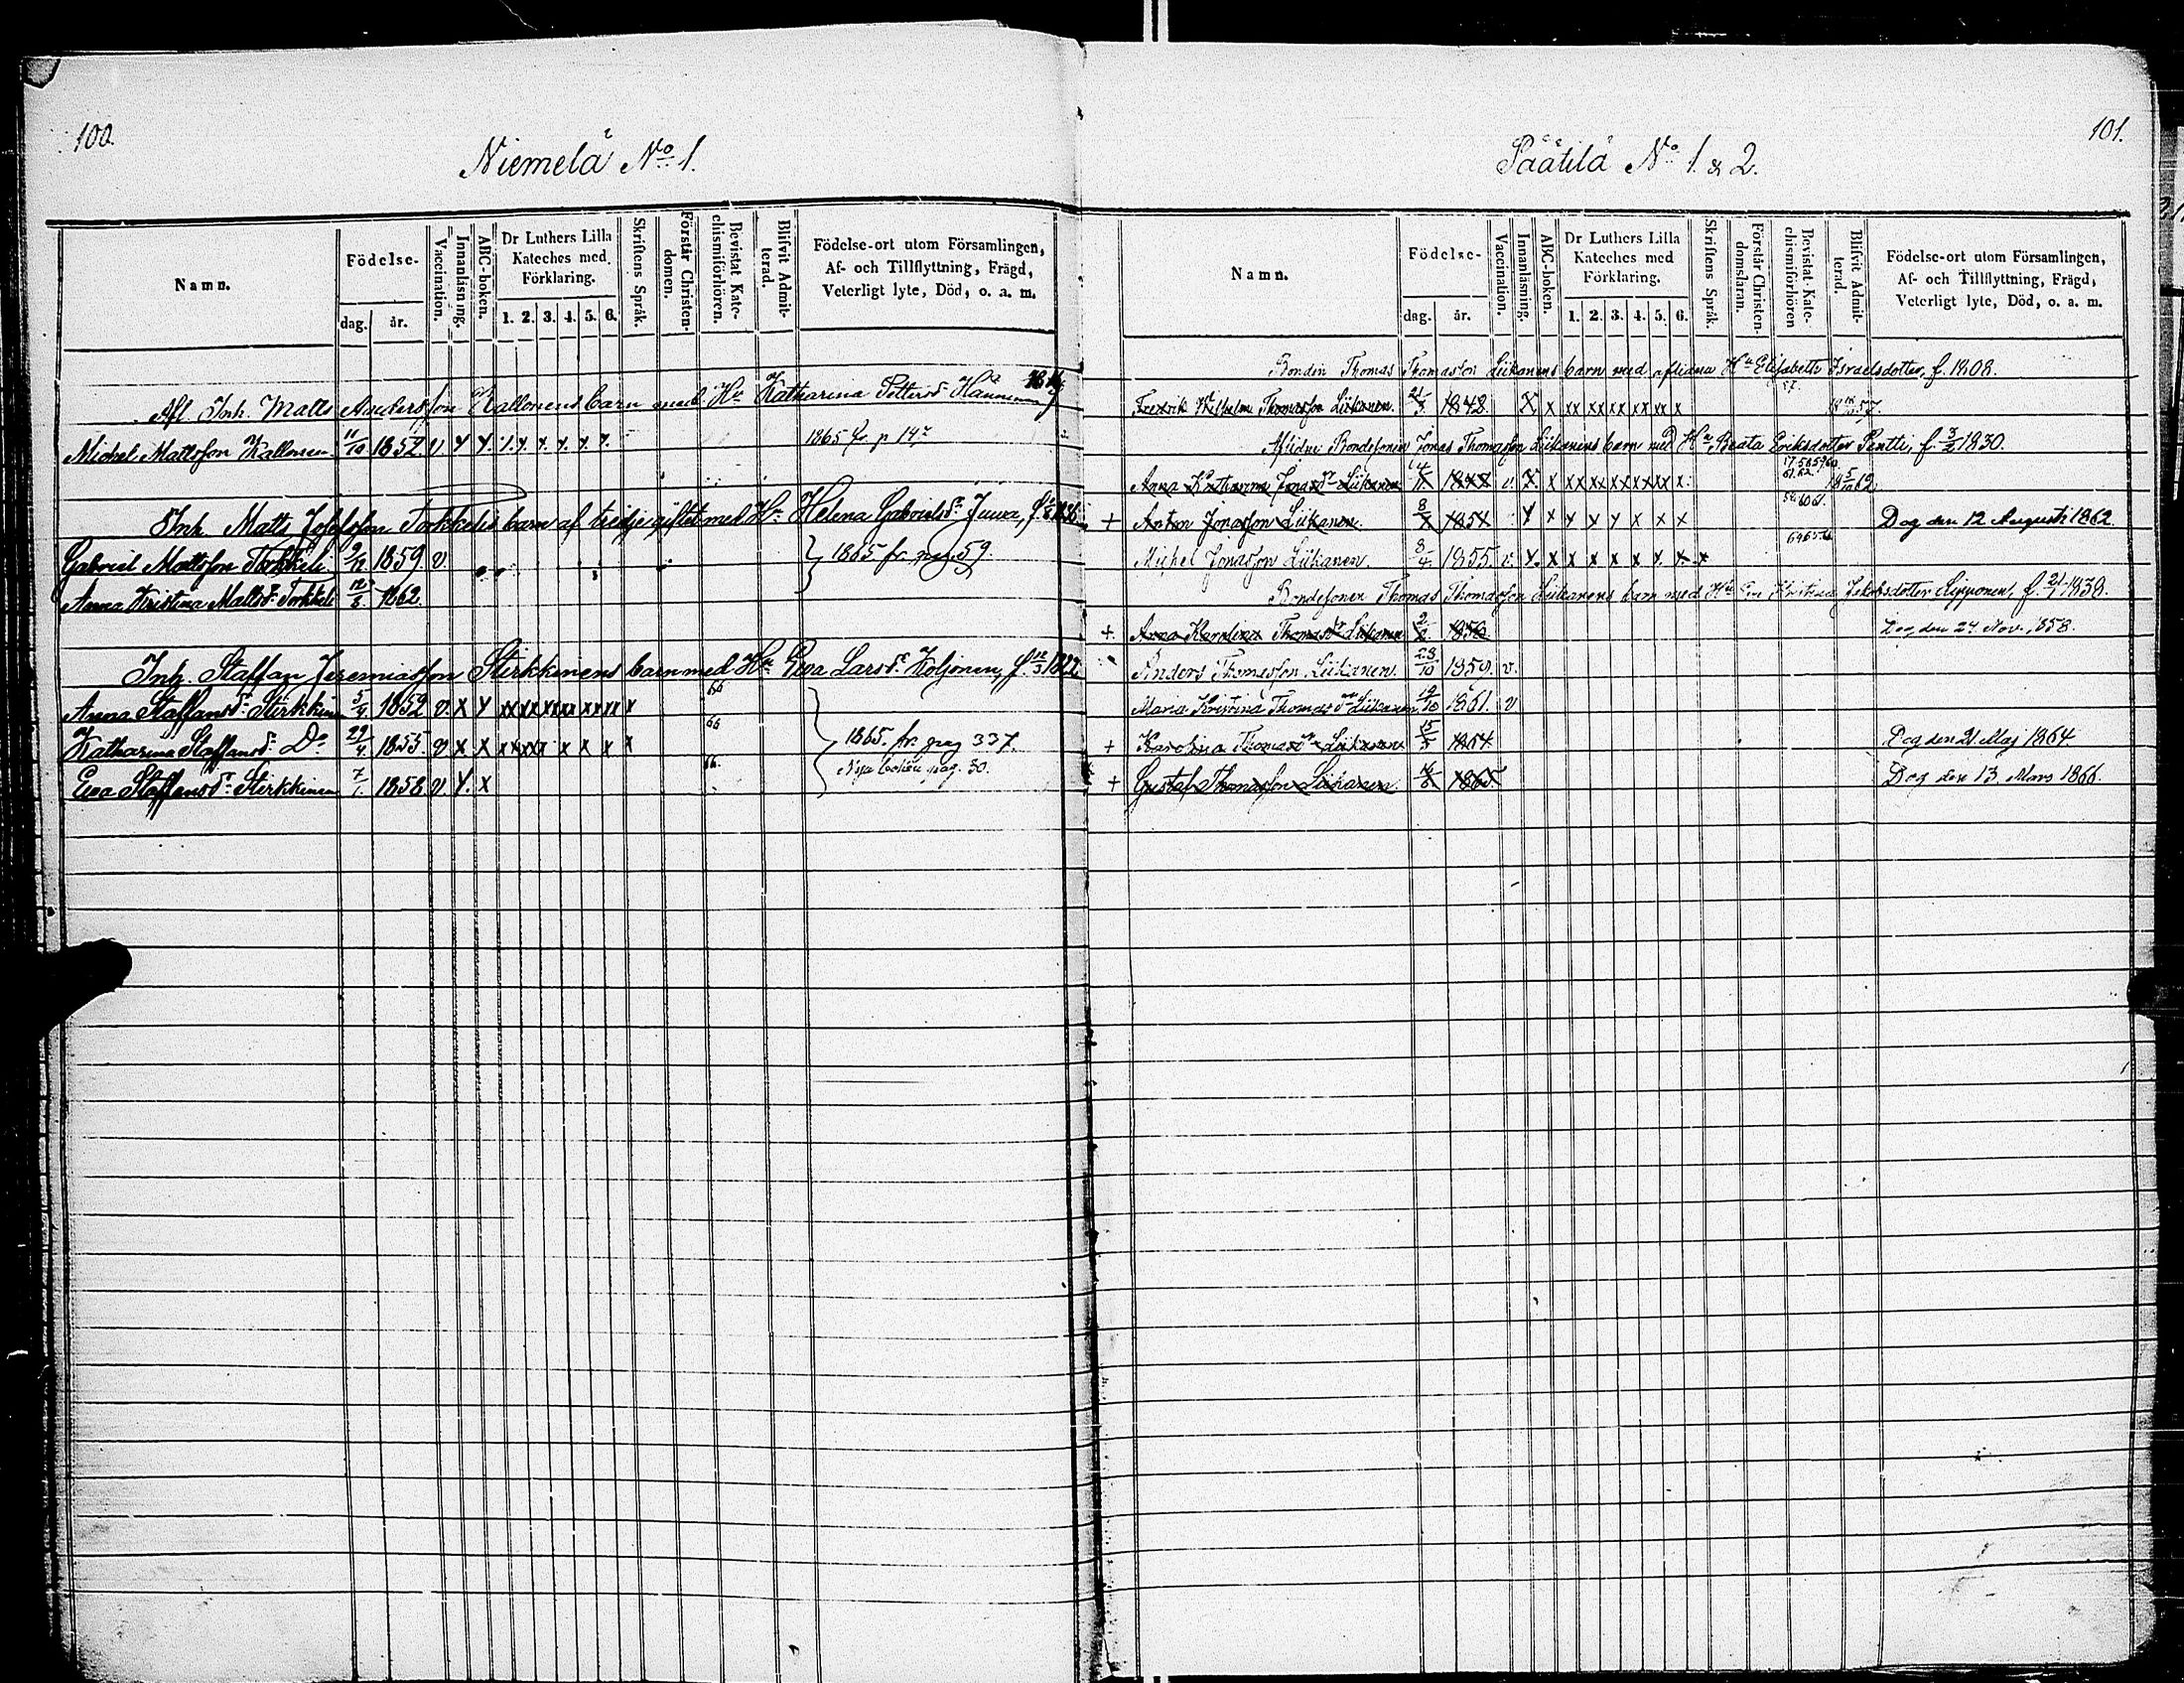 100.
Niemelä No 1.
Namn.
Födelse-
dag.
år.
Vaccination.
Innanläsning.
ABC-boken.
Dr Luthers Lilla Kateches med Förklaring.
1. 2. 3. 4. 5. 6.
Skriftens Språk.
Förstår Christendomen.
Bevistat Katechismiförhören.
Blifvit Admitterad.
Födelse-ort utom Församlingen,
Af- och Tillflyttning, Frägd,
Veterligt lyte, Död, o. a. m.
Afl. Inh. Matts Andersson Kallonens barn med Hu Katharina Pettersdr Hänninen
Michel Mattsson Kallonen 11/10 1852. v Y Y. 1865 fr. p 147
Inh. Matts Josefsson Torkkelis barn af tredje giftet med Hu Helena Gabrielsdr Juwa,
Gabriel Mattsson Torkkeli 9/12 1859. v. 1865 fr. pag. 59.
Anna Kristina Mattsdr Torkkeli 1862.
Inh. Staffan Jeremiasson Stirkkinens barn med Hu Ewa Larsdr Koljonen, f. 12/3 1822
Anna Staffansdr Stirkkinen 5/4 1852 v. X Y xx xx xx xx xx xx x 66
Katharina Staffansdr Do 29/4 1855. v X X xx xx x x x x 66 1865. fr. pag 337.
Ewa Staffansdr Stirkkinen 7/1. 1858 v. Y. X 66. Nya boken pag. 30.
101.
Päätilä No 1. & 2.
Namn.
Födelse-
dag.
år.
Vaccination.
Innanläsning.
ABC-boken.
Dr Luthers Lilla Kateches med Förklaring.
1. 2. 3. 4. 5. 6.
Skriftens Språk.
Förstår Christendomsläran.
Bevistat Katechismiförhören
Blifvit Admitterad.
Födelse-ort utom Församlingen,
Af- och Tillflyttning, Frägd,
Veterligt lyte, Död, o. a. m.
Bonden Thomas Thomasson Liikanens barn med aflidna Hu Elisabeth Israelsdotter, f. 1808.
Fredrik Wilhelm Thomasson Liikanen. 21/3 1842. X x xx xx xx xx xx x 57.
Aflidne Bondesonen Jonas Thomasson Liikanens barn med Hu Beata Eriksdotter Pentti, f. 3/2 1830.
Anna Katharina Jonasdr Liikanen v. X x xx xx xx xx xx x 57.58 59 60. 61. 62. 18 5/10 62
+ Anton Jonasson Liikanen. 1854 Y x Y x Y x x x 60 61. Dog den 12 Augusti 1862.
Michel Jonasson Liikanen. 8/4. 1855. v. Y x x x x x x. x. x 64 65. 66
Bondesonen Thomas Thomasson Liikanens barn med Hu Eva Kristina Jakobsdotter Lipponen, f. 21/1 1838.
+. Anna Karolina Thomasdr Liikanen 1858 Dog den 24 Nov. 1858.
Anders Thomasson Liikanen 28/10 1859. v.
Maria Kristina Thomasdr Liikanen 19/10 1861. v
+ Karolina Thomasdr Liikanen 1864 Dog den 21 Maj 1864.
+ Gustaf Thomasson Liikanen. 1865. Dog den 13. Mars 1866.